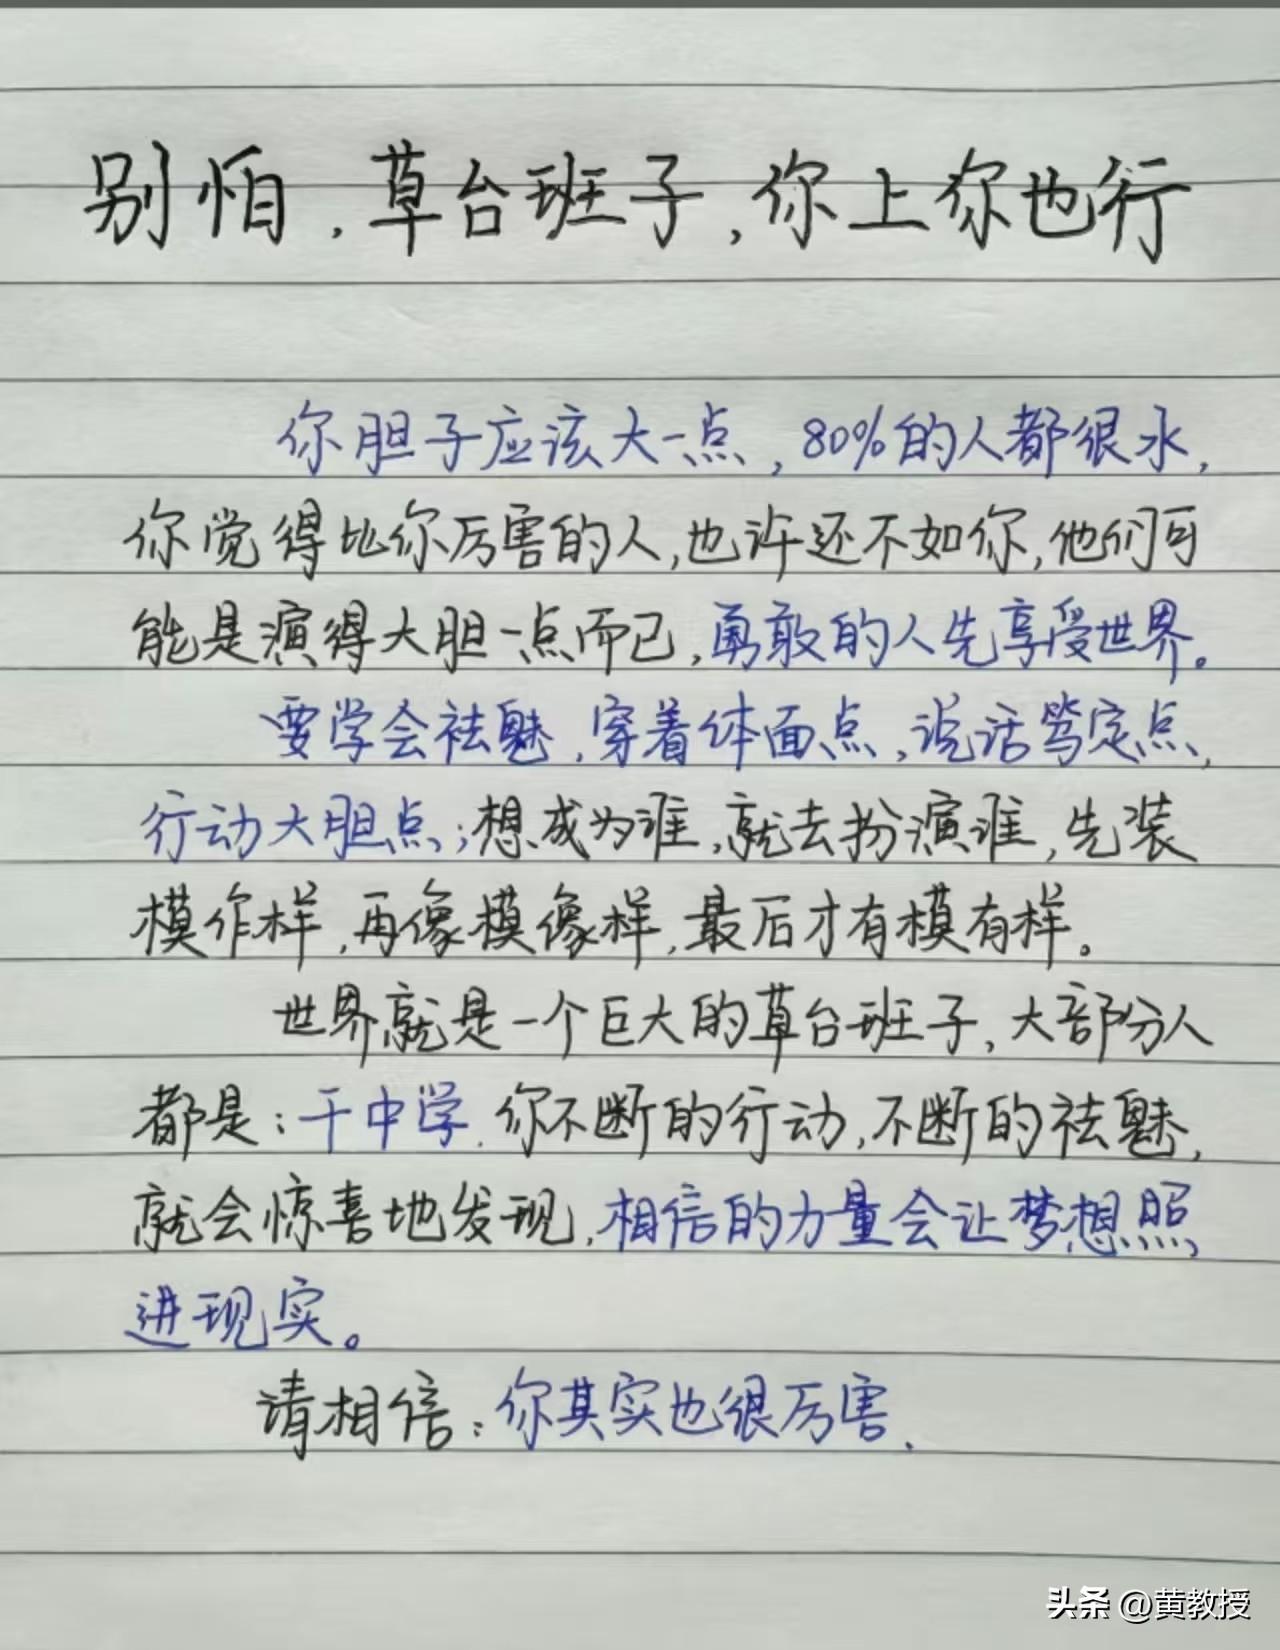 别怕，草台班子，你上你也行
你胆子应该大一点，80%的人都很水，
你觉得比你厉害的人，也许还不如你，他们可
能是演得大胆一点而已，勇敢的人先享受世界。
要学会祛魅，穿着体面点，说话笃定点，
行动大胆点；想成为谁，就去扮演谁，先装
模作样，再像模像样，最后才有模有样。
世界就是一个巨大的草台班子，大部分人
都是：干中学．你不断的行动，不断的祛魅，
就会惊喜地发现，相信的力量会让梦想照
进现实。
请相信：你其实也很厉害．
头条 @黄教授